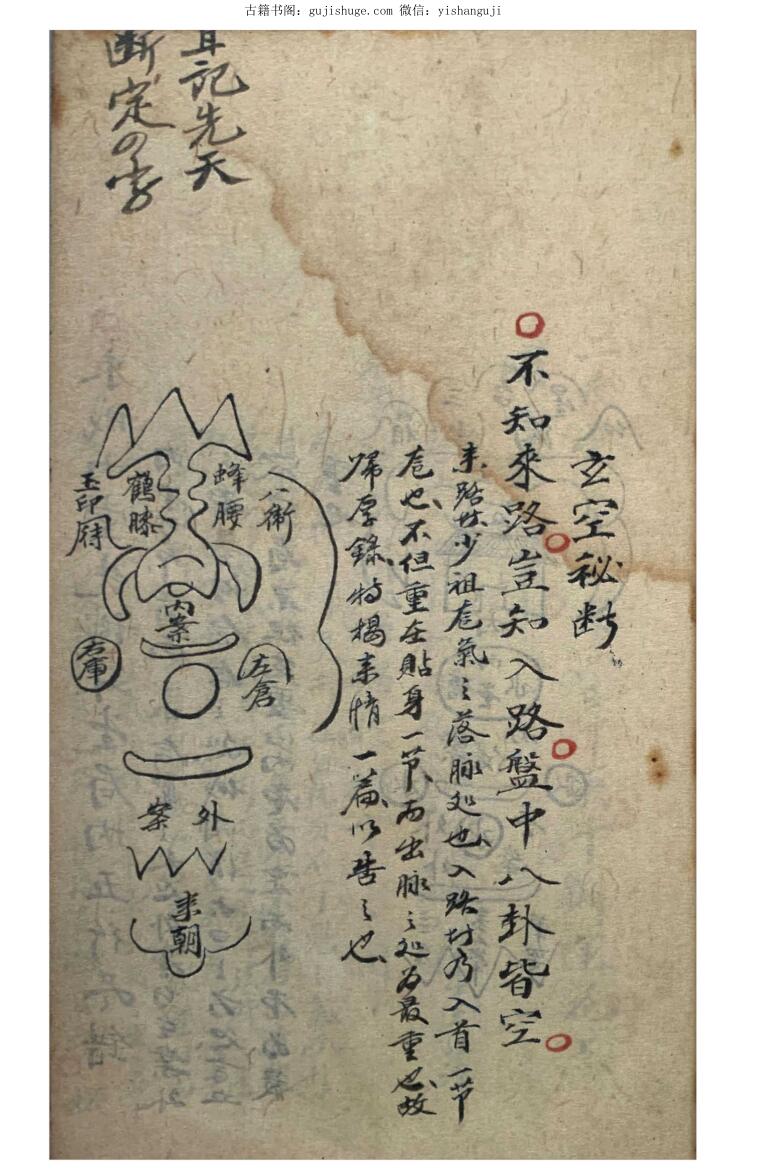 古籍书阁：gujishuge.com 微信：yishanguji
耳記先天
断定の字
玄空秘断
不知來路豈知入路盤中八卦皆空
来路者少祖龙氣之落脉处也、入路者乃入首一节
龙也、不但重在贴身一节、而出脉之处為最重也、故
歸厚錄、特揭来情一篇、以告之也
八衛
蜂腰
鶴膝
玉印
内案
左倉
右庫
外案
来朝